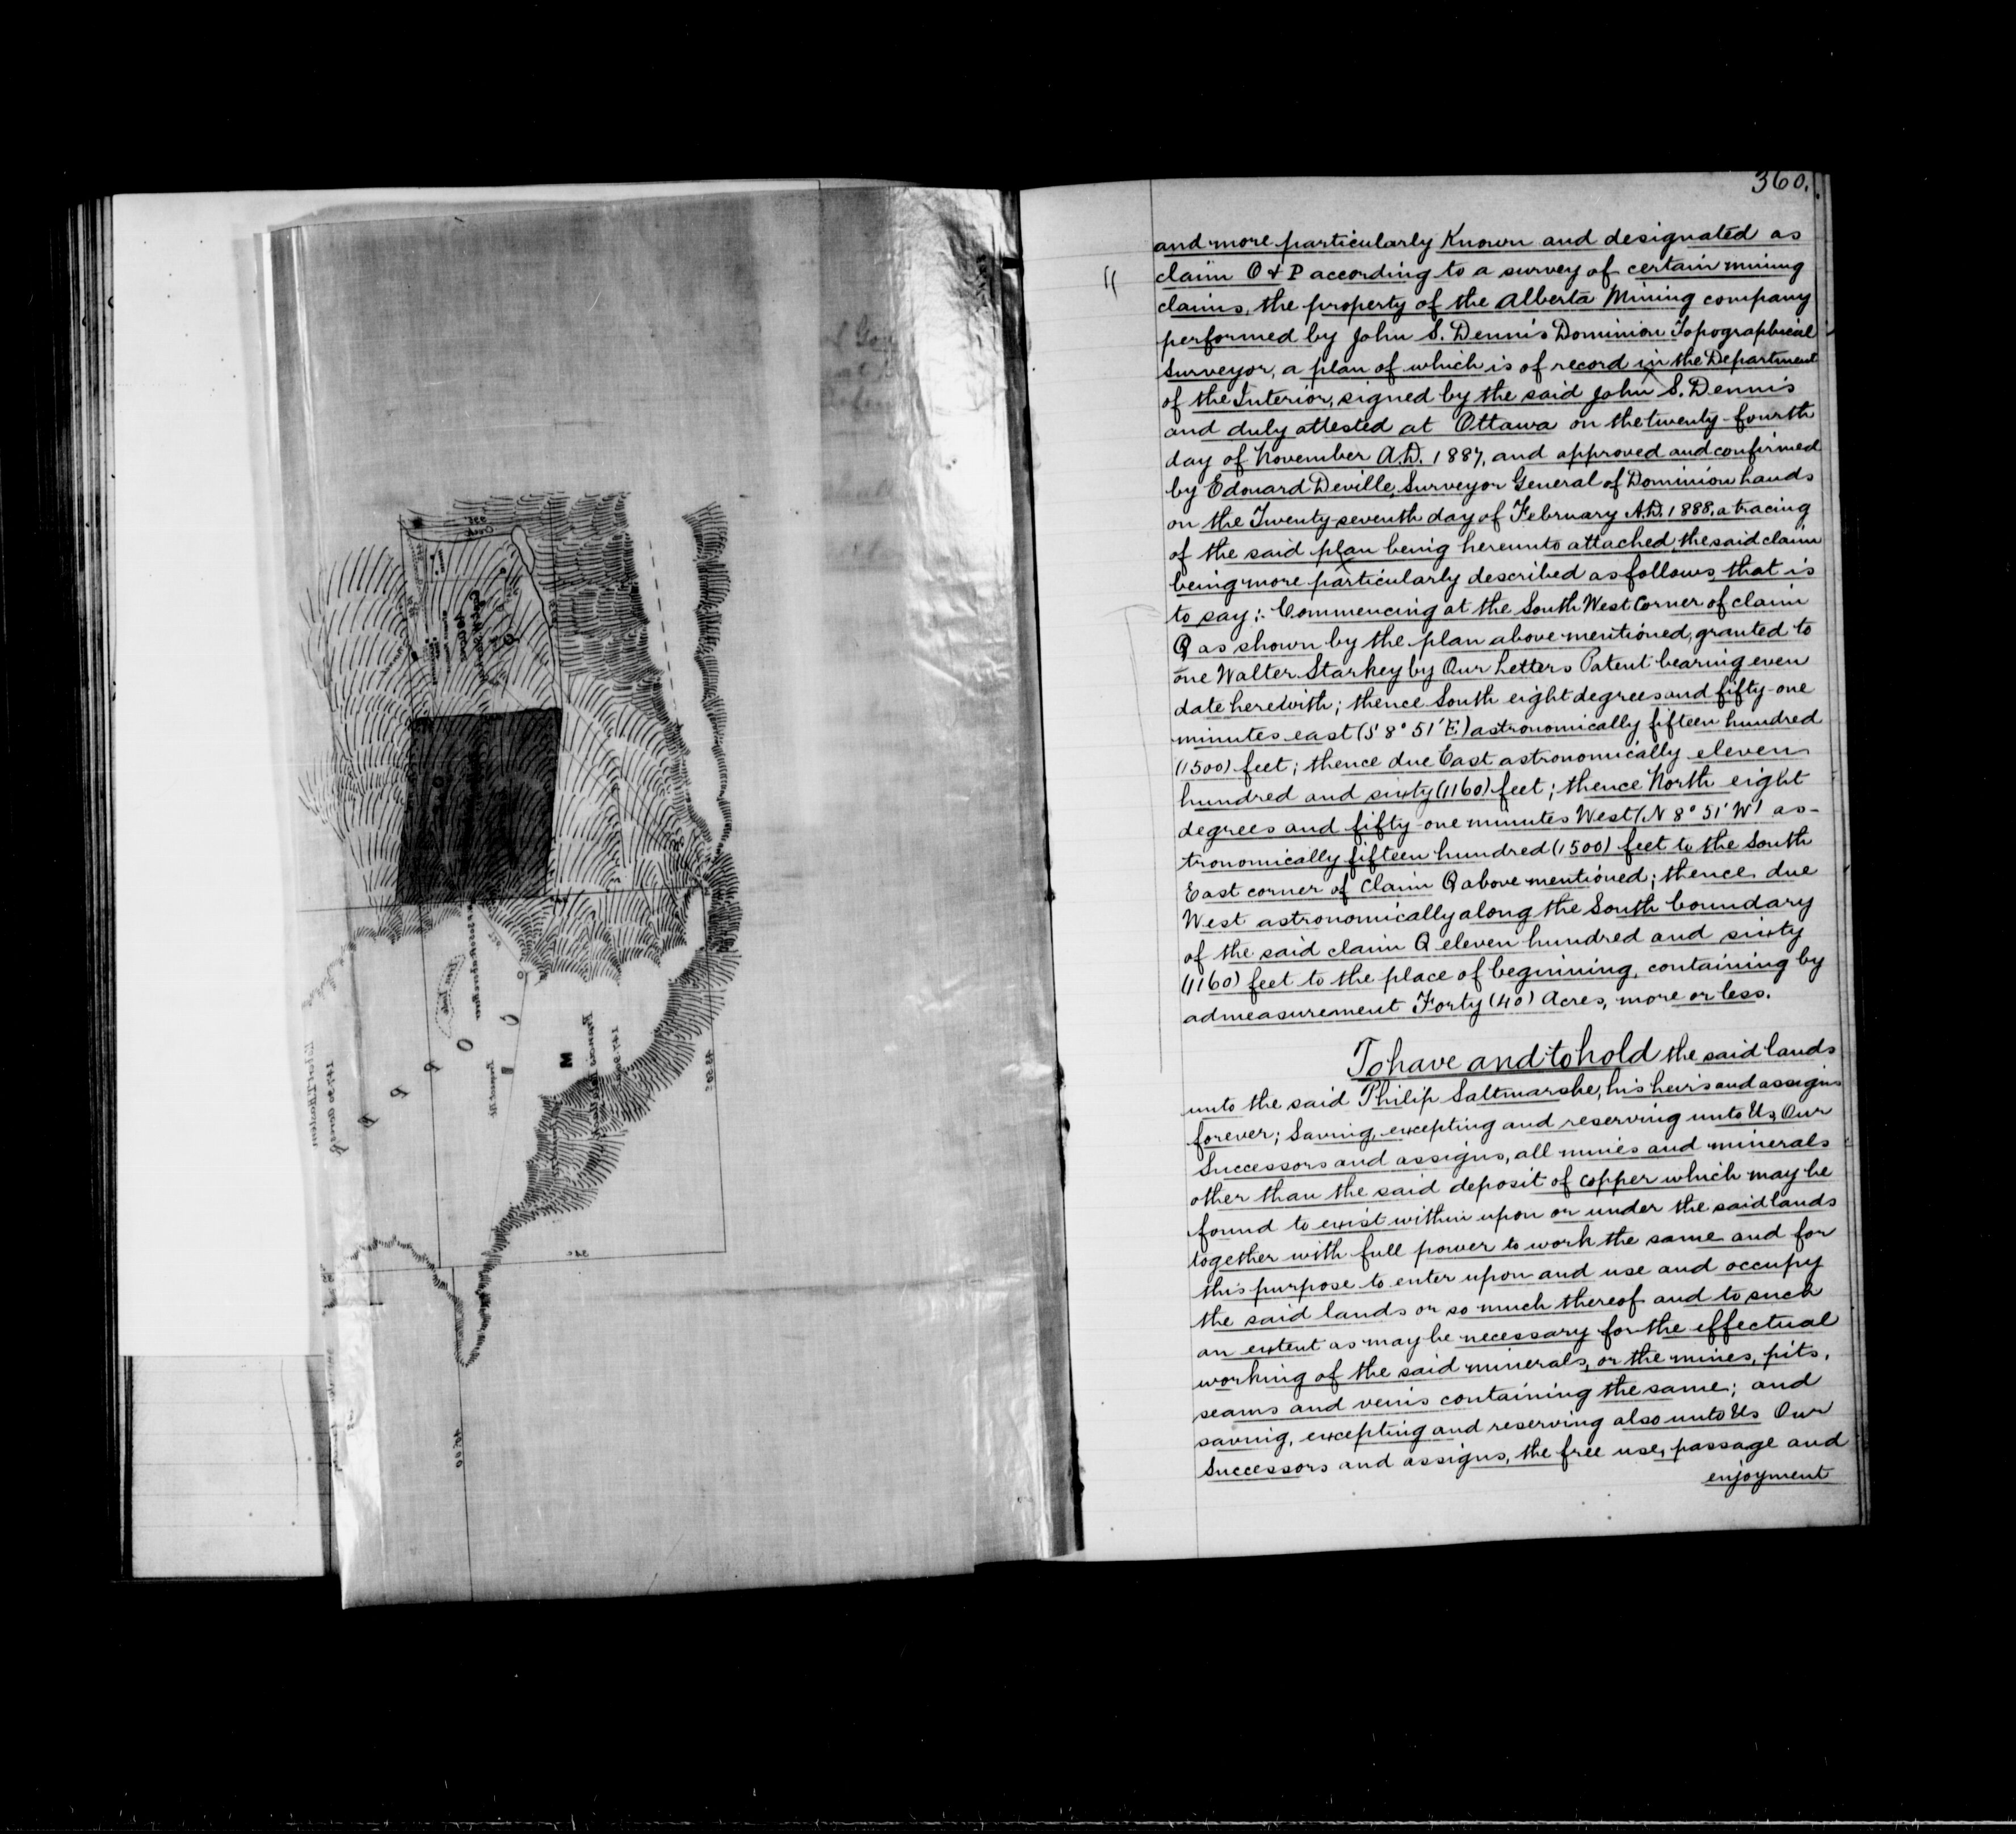 360.
and more particularly Known and designated as
claim O & P according to a survey of certain mining
claims, the property of the Alberta Mining company
performed by John S. Dennis Dominion Topographical
Surveyor, a plan of which is of record in the Department
of the Interior, signed by the said John S. Dennis
and duly attested at Ottawa on the twenty-fourth
day of November A.D. 1887, and approved and confirmed
by Edouard Deville, Surveyor General of Dominion Lands
on the Twenty-seventh day of February A.D. 1888, a tracing
of the said plan being hereunto attached, the said claim
being more particularly described as follows, that is
to say:- Commencing at the South West Corner of claim
Q as shown by the plan above mentioned, granted to
one Walter Starkey by Our Letters Patent bearing even
date herewith; thence South eight degrees and fifty-one
minutes east (S 8° 51' E) astronomically fifteen hundred
(1500) feet; thence due East astronomically eleven
hundred and sixty (1160) feet; thence North eight
degrees and fifty-one minutes West (N 8° 51' W) as-
tronomically fifteen hundred (1500) feet to the South
East corner of Claim Q above mentioned; thence due
West astronomically along the South boundary
of the said claim Q eleven hundred and sixty
(1160) feet to the place of beginning, containing by
admeasurement Forty (40) Acres, more or less.
To have and to hold the said lands
unto the said Philip Saltmarshe, his heirs and assigns
forever; Saving, excepting and reserving unto Us, Our
Successors and assigns, all mines and minerals
other than the said deposit of copper which may be
found to exist within upon or under the said lands
together with full power to work the same and for
this purpose to enter upon and use and occupy
the said lands or so much thereof and to such
an extent as may be necessary for the effectual
working of the said minerals, or the mines, pits,
seams and veins containing the same; and
saving, excepting and reserving also unto Us Our
Successors and assigns, the free use, passage and
enjoyment
M